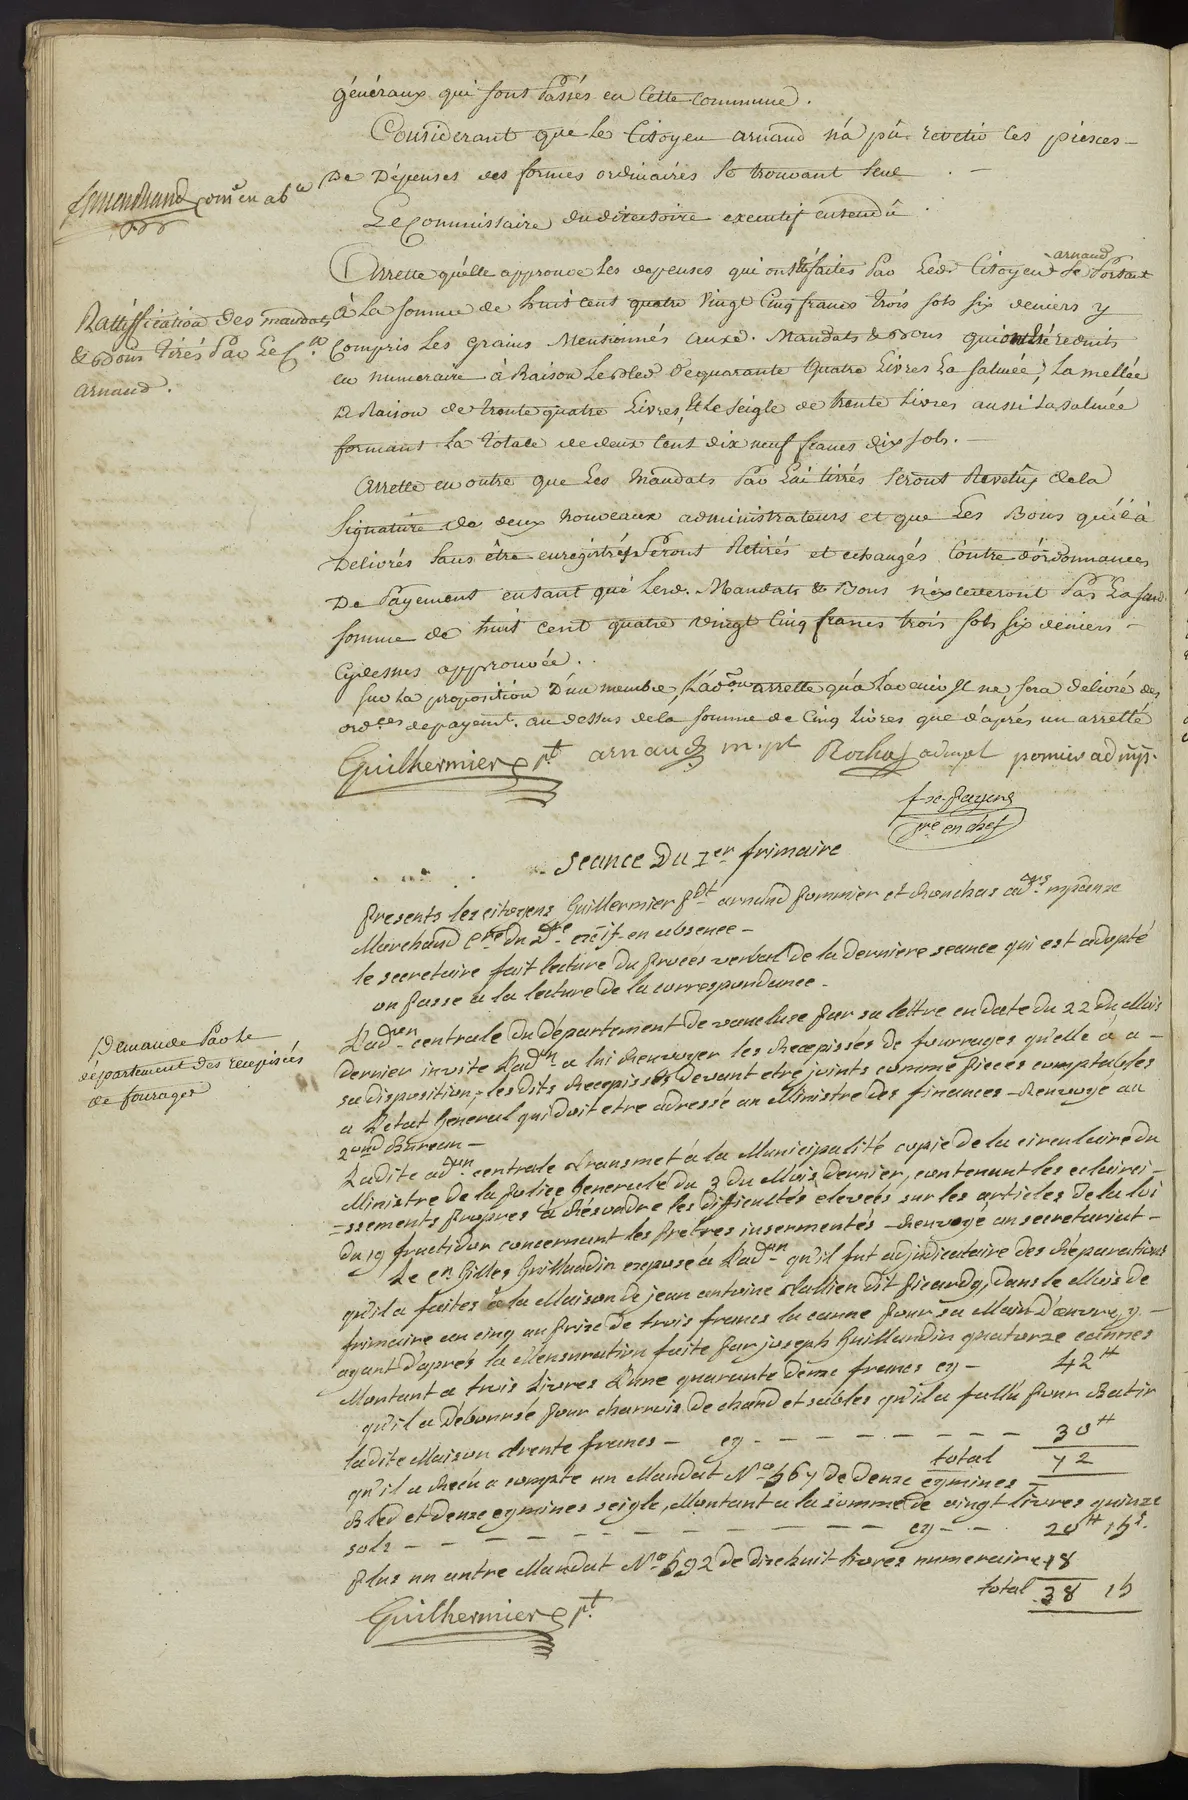 généraux qui sont Passés en Cette commune.
Considerant que le Citoyen arnaud n'a pû revetir les pieces
De Dépenses des formes ordinaires se trouvant seul
Le Commissaire du directoire executif entendû.
Marchand com.re en ab.ce
Arrette qu'elle approuve les depenses qui ont été faites Par Ledt Citoyen arnaud se Portant
à La somme de huit cent quatre Vingt Cinq francs trois sols six deniers y
Compris les grains Mentionnés auxd. Mandats & Bons qui ont été reduits
en numeraire à Raison Le Bled de quarante quatre Livres La salmée, La mellée
à Raison de trente quatre Livres, Et Le seigle de trente Livres aussi La salmée
formant La totale de deux Cent dix neuf francs dix sols.
Rattiffication des mandats
& Bons tirés Par Le C.en
arnaud.
Arrette en outre que Les Mandats Par Lui tirrés Seront Revetûs dela
Signature de deux nouveaux administrateurs et que Les Bons qu'il à
Delivrés Sans être enregistrés Seront Retirés et echangés Contre d'ordonnances
De Payement entant que Lesd. Mandats & Bons n'excederont Pas La susd.
somme de huit cent quatre vingt Cinq francs trois sols six deniers
Cydessus approuvée.
sur La proposition D'un membre, L'ad.on arrette qu'à L'avenir Il ne sera delivré des
ord.ces de payem.t au dessus dela somme de Cinq Livres que d'aprés un arretté
Guilhermier p.t arnaud m. pt Rochas adm pt pomier adm.
fx. Fayens
s.re en chef
Seance Du 1er frimaire
Presents les citoyens Guillermier P.dt arnaud Pommier et Rouchas ad.rs mpaux
Marchand C.re du D.re exéif en absence -
le secretaire fait lecture du Proces verbal de la derniere seance qui est adopté
on Passe a la lecture de la correspondance.
L'ad.on centrale du département de vaucluse Par sa lettre en date du 22 du Mois
dernier invite L'ad.on a lui Renvoyer les Recepissés de fourrages qu'elle a a -
sa disposition, lesdits Recepissés devant etre joints comme Pieces comptables
a L'etat General qui doit etre adressé au Ministre des finances - Renvoyé au
2ond Bureau -
Demande Par Le
département des recepissés
de fourages
Ladite ad.on centrale transmet à la Municipalité copie de la circulaire du
Ministre de la Police Generale du 3 du Mois dernier, contenant les eclairci-
-ssements Propres à Résoudre les difficultés elevées sur les articles de la loi
du 19 fructidor concernant les Pretres insermentés - Renvoyé au secretariat -
Le C.en Gilles Guillaudin expose à L'ad.on qu'il fut adjudicataire des Réparations
qu'il a faites à la Maison de jean antoine Rallien dit Picardy, dans le Mois de
frimaire an cinq au Prix de trois francs la canne Pour sa Main D'œuvre, y -
ayant d'aprés la Mensuration faite Par joseph Guillaudin quatorze cannes
Montant a trois Livres L'une quarante deux francs cy - 42 ₶
qu'il a Déboursé Pour charrois de chaud et sables qu'il a fallu Pour Batir
ladite Maison trente francs - cy - - - - - - - - 30 ₶
total 72
qu'il a Reçu a compte un Mandat N.o 567 de deux eymines -
Bled et deux eymines seigle, Montant a la somme de vingt livres quinze
sols - - - - - - - - - - - - cy - - 20 ₶ 15 s.
Plus un autre Mandat N.o 592 de dixhuit livres numeraire 18
total 38 15
Guilhermier p.t